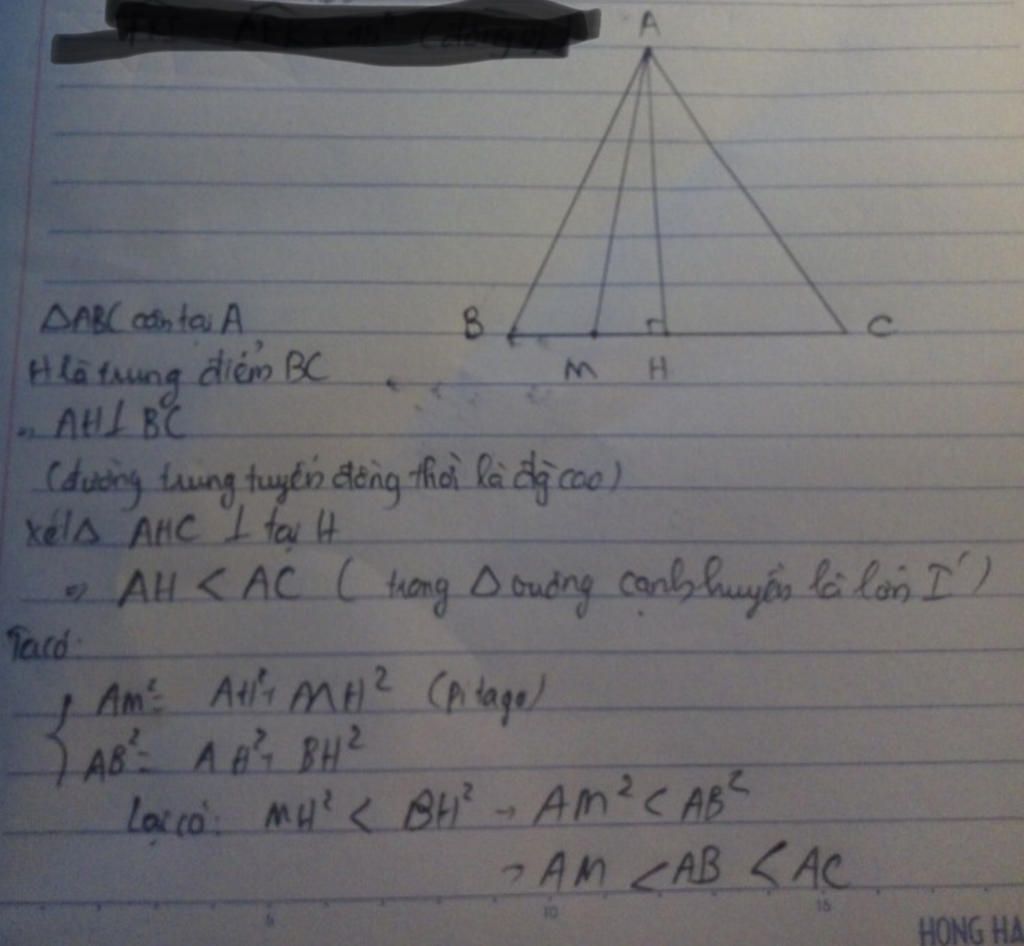 A
B
M
H
C
ΔABC cân tại A
H là trung điểm BC
⇒ AH ⊥ BC
(đường trung tuyến đồng thời là đg cao)
Xét Δ AHC ⊥ tại H
⇒ AH < AC ( trong Δ vuông cạnh huyền là lớn I')
Ta có:
AM² = AH² + MH² (Pitago)
AB² = AH² + BH²
Lại có: MH² < BH² → AM² < AB²
→ AM < AB < AC
5 10 15
HONG HA